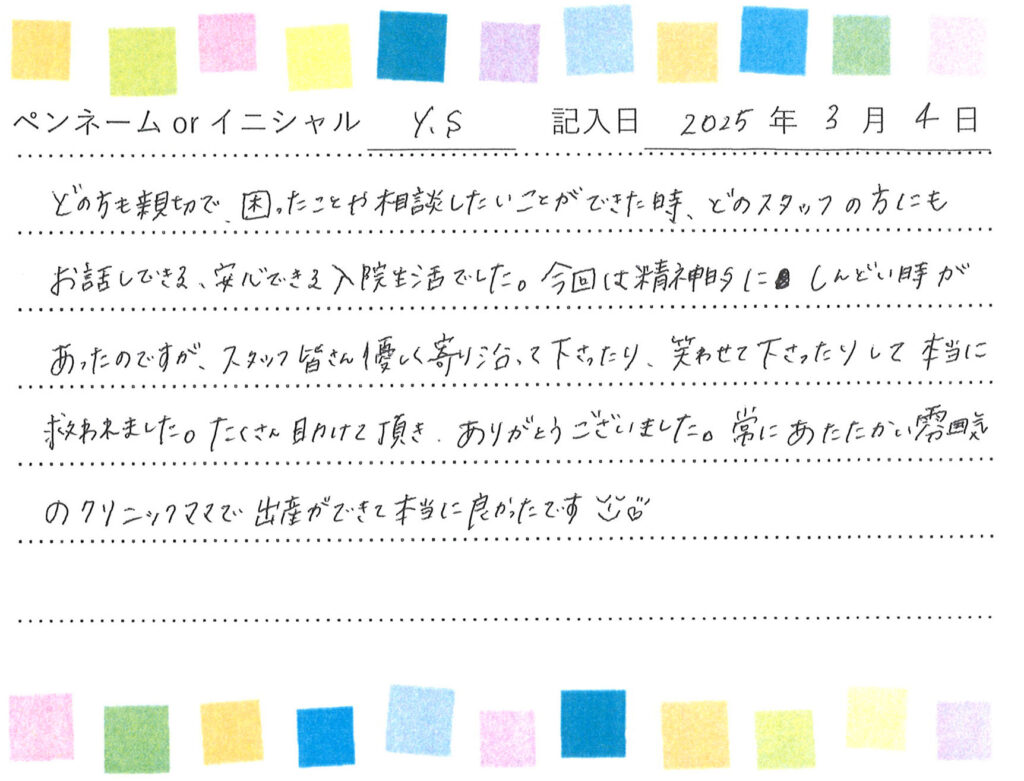 ペンネーム or イニシャル Y.S 記入日 2025年 3月 4日
どの方も親切で、困ったことや相談したいことができた時、どのスタッフの方にも
お話しできる、安心できる入院生活でした。今回は精神的に しんどい時が
あったのですが、スタッフ皆さん優しく寄り沿って下さったり、笑わせて下さったりして本当に
救われました。たくさん助けて頂き、ありがとうございました。常にあたたかい雰囲気
のクリニックママで出産ができて本当に良かったです